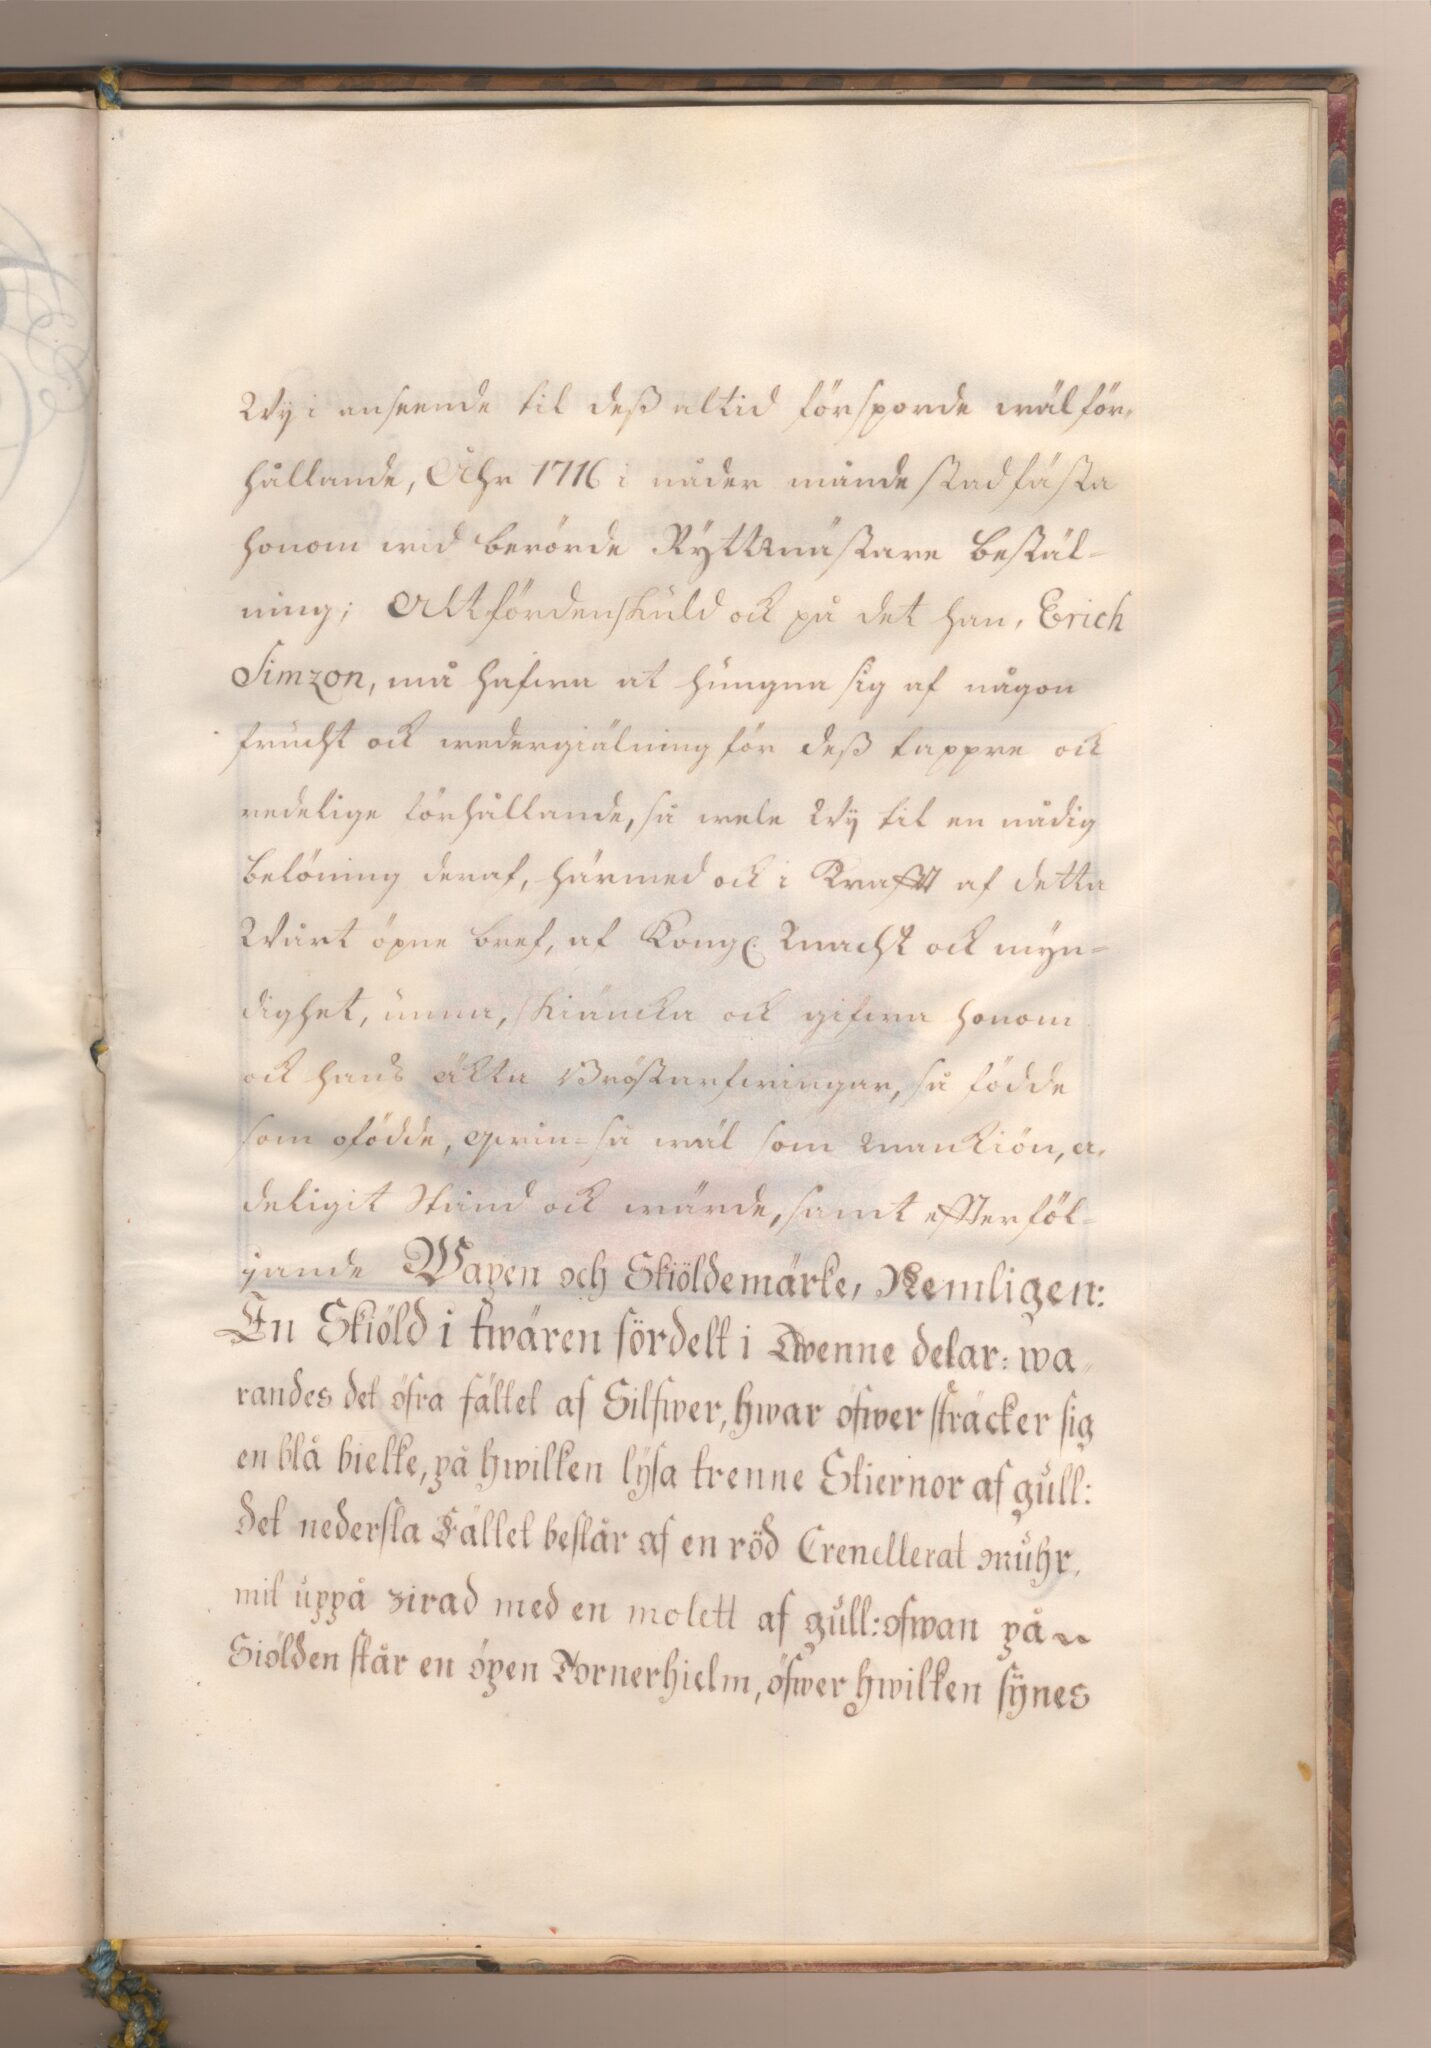 Wy i anseende til deß altid försporde wälför-
hållande, Åhr 1716 i nåder månde stadfästa
honom wid berörde Ryttmästare bestäl-
ning; Altfördenskuld ock på det han, Erich
Simzon, må hafwa at hùngna sig af någon
frùcht ock wedergiälning för deß tappre ock
redelige förhållande, så wele Wÿ til en nådig
belöning deraf, härmed ock i Krafft af detta
Wårt öpne bref, af Kongl. macht ock myn-
dighet, ùnna, skiäncka ock gifwa honom
ock hans äkta Bröstarfwingar, så födde
som ofödde, qwin- så wäl som Mankiön, a-
deligit Stånd ock wärde, samt efterföl-
jande Wapen och Skiöldemärke, Nemligen:
En Skiöld i twären fördelt i Twenne delar: wa-
randes det öfra fältet af Silfwer, hwar öfwer sträcker sig
en blå bielke, på hwilken lÿsa trenne Stiernor af gùll:
det nedersta Fältet består af en röd Crenellerat Mùhr,
mit ùppå zirad med en molett af gùll: ofwan på
Siölden står en öpen Tornerhielm, öfwer hwilken sÿnes